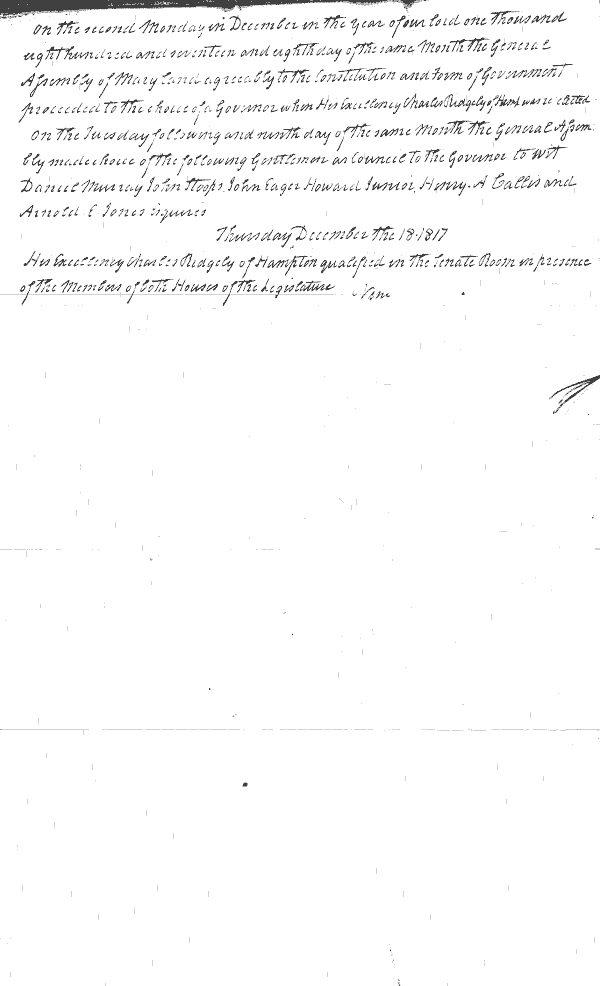 On the second Monday in December in the Year of our Lord one Thousand
eight hundred and seventeen and eighth day of the same Month the General
Assembly of Maryland agreeably to the Constitution and Form of Government
proceeded to the choice of a Governor when His Excellency Charles Ridgely of Hamp was re elected
On the Tuesday following and ninth day of the same Month the General Assem
bly made choice of the following Gentlemen as Council to the Governor to wit
Daniel Murray John Stoops John Eager Howard Junior Henry A Callis and
Arnold E Jones Esquires
Thursday December the 18. 1817
His Excellency Charles Ridgely of Hampton qualified in the Senate Room in presence
of the Members of both Houses of the Legislature